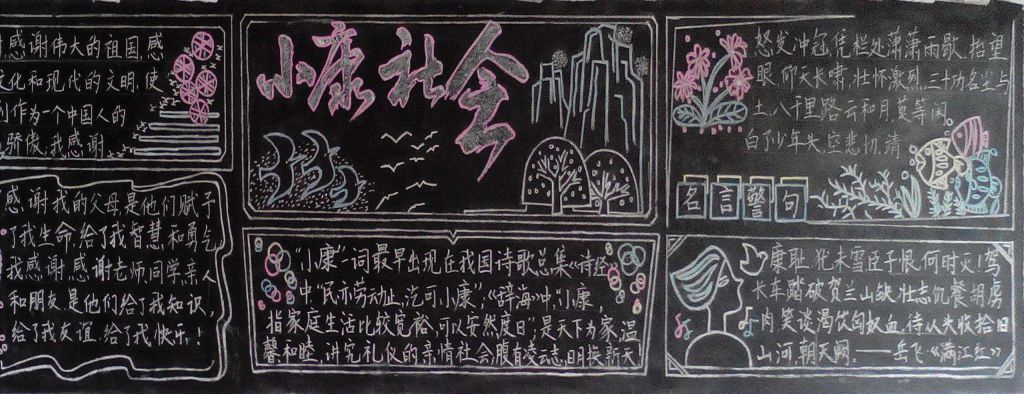 感谢伟大的祖国,感
文化和现代的文明,使
作为一个中国人的
骄傲,我感谢
感谢我的父母是他们赋予
了我生命,给了我智慧和勇气
我感谢,感谢老师,同学,亲人
和朋友是他们给了我知识,
给了我友谊,给了我快乐!
小康社会
"小康"一词最早出现在我国诗歌总集《诗经》
中"民亦劳动止,汔可小康",《辞海》中"小康,
指家庭生活比较宽裕,可以安然度日",是天下为家,温
馨和睦,讲究礼仪的亲情社会,腹有凌云志,日月换新天
怒发冲冠凭栏处,潇潇雨歇,抬望
眼,仰天长啸,壮怀激烈,三十功名尘与
土,八千里路云和月莫等闲,
白了少年头,空悲切,靖
名言警句
康耻,犹未雪臣子恨,何时灭!驾
长车踏破贺兰山缺,壮志饥餐胡虏
肉,笑谈渴饮匈奴血,待从头收拾旧
山河,朝天阙.——岳飞《满江红》